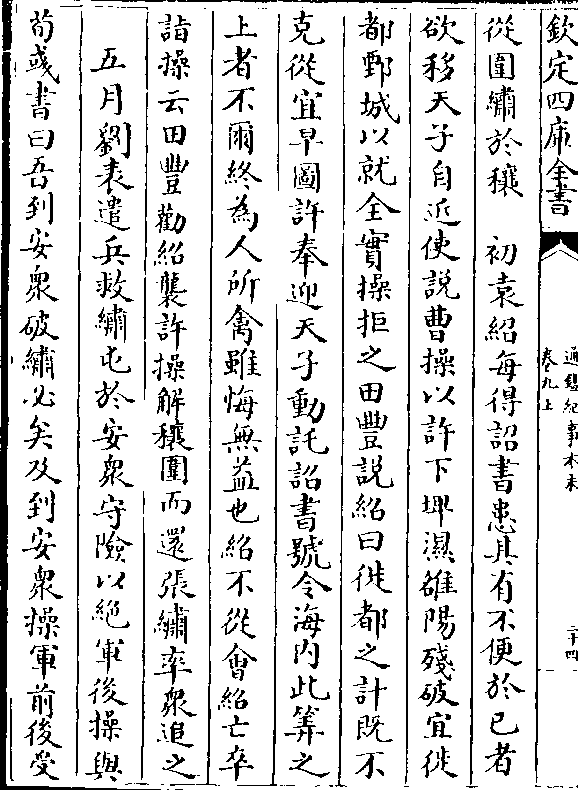 欽定四庫全書
通鑑紀事本末
卷九上
二十四
從圍繡於穰　初袁紹每得詔書患其有不便於已者
欲移天子自近使說曹操以許下埤濕雒陽殘破宜徙
都鄄城以就全實操拒之田豐說紹曰徙都之計既不
克從宜早圖許奉迎天子動託詔書號令海内此筭之
上者不爾終為人所禽雖悔無益也紹不從會紹亡卒
詣操云田豐勸紹襲許操解穰圍而還張繡率衆追之
五月劉表遣兵救繡屯於安衆守險以絶軍後操與
荀彧書曰吾到安衆破繡必矣及到安衆操軍前後受